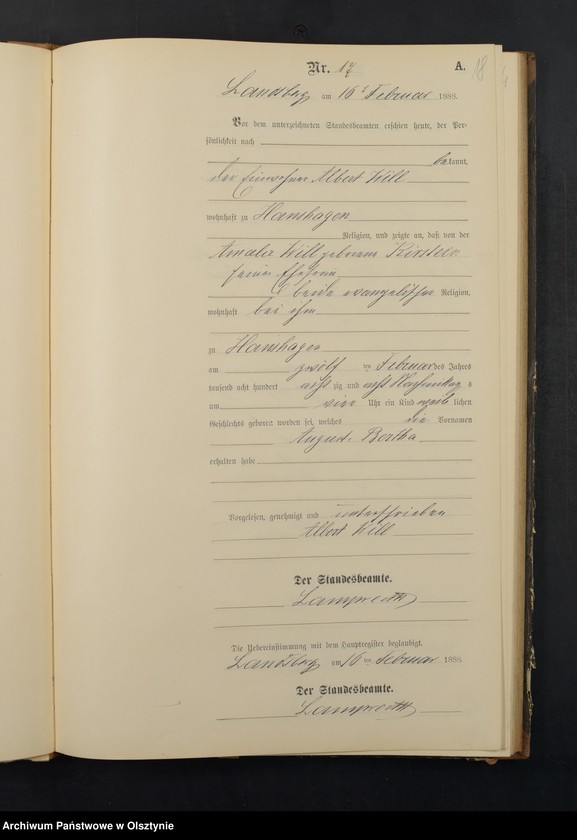 Nr. 17
A. 18
Landsberg am 16 Februar 1888.
Vor dem unterzeichneten Standesbeamten erschien heute, der Per-
sönlichkeit nach
bekannt,
der Einwohner Albert Will
wohnhaft zu Hanshagen
Religion, und zeigte an, daß von der
Amalia Will geborene
seiner Ehefrau
beide evangelischer Religion,
wohnhaft bei ihm
zu Hanshagen
am zwölf ten Februar des Jahres
tausend acht hundert acht zig und acht Nachmittag s
um vier Uhr ein Kind weib lichen
Geschlechts geboren worden sei, welches die Vornamen
August Bertha
erhalten habe
Vorgelesen, genehmigt und unterschrieben
Albert Will
Der Standesbeamte.
Lamprecht
Die Uebereinstimmung mit dem Hauptregister beglaubigt.
Landsberg am 16 ten Februar 1888.
Der Standesbeamte.
Lamprecht
Archiwum Państwowe w Olsztynie